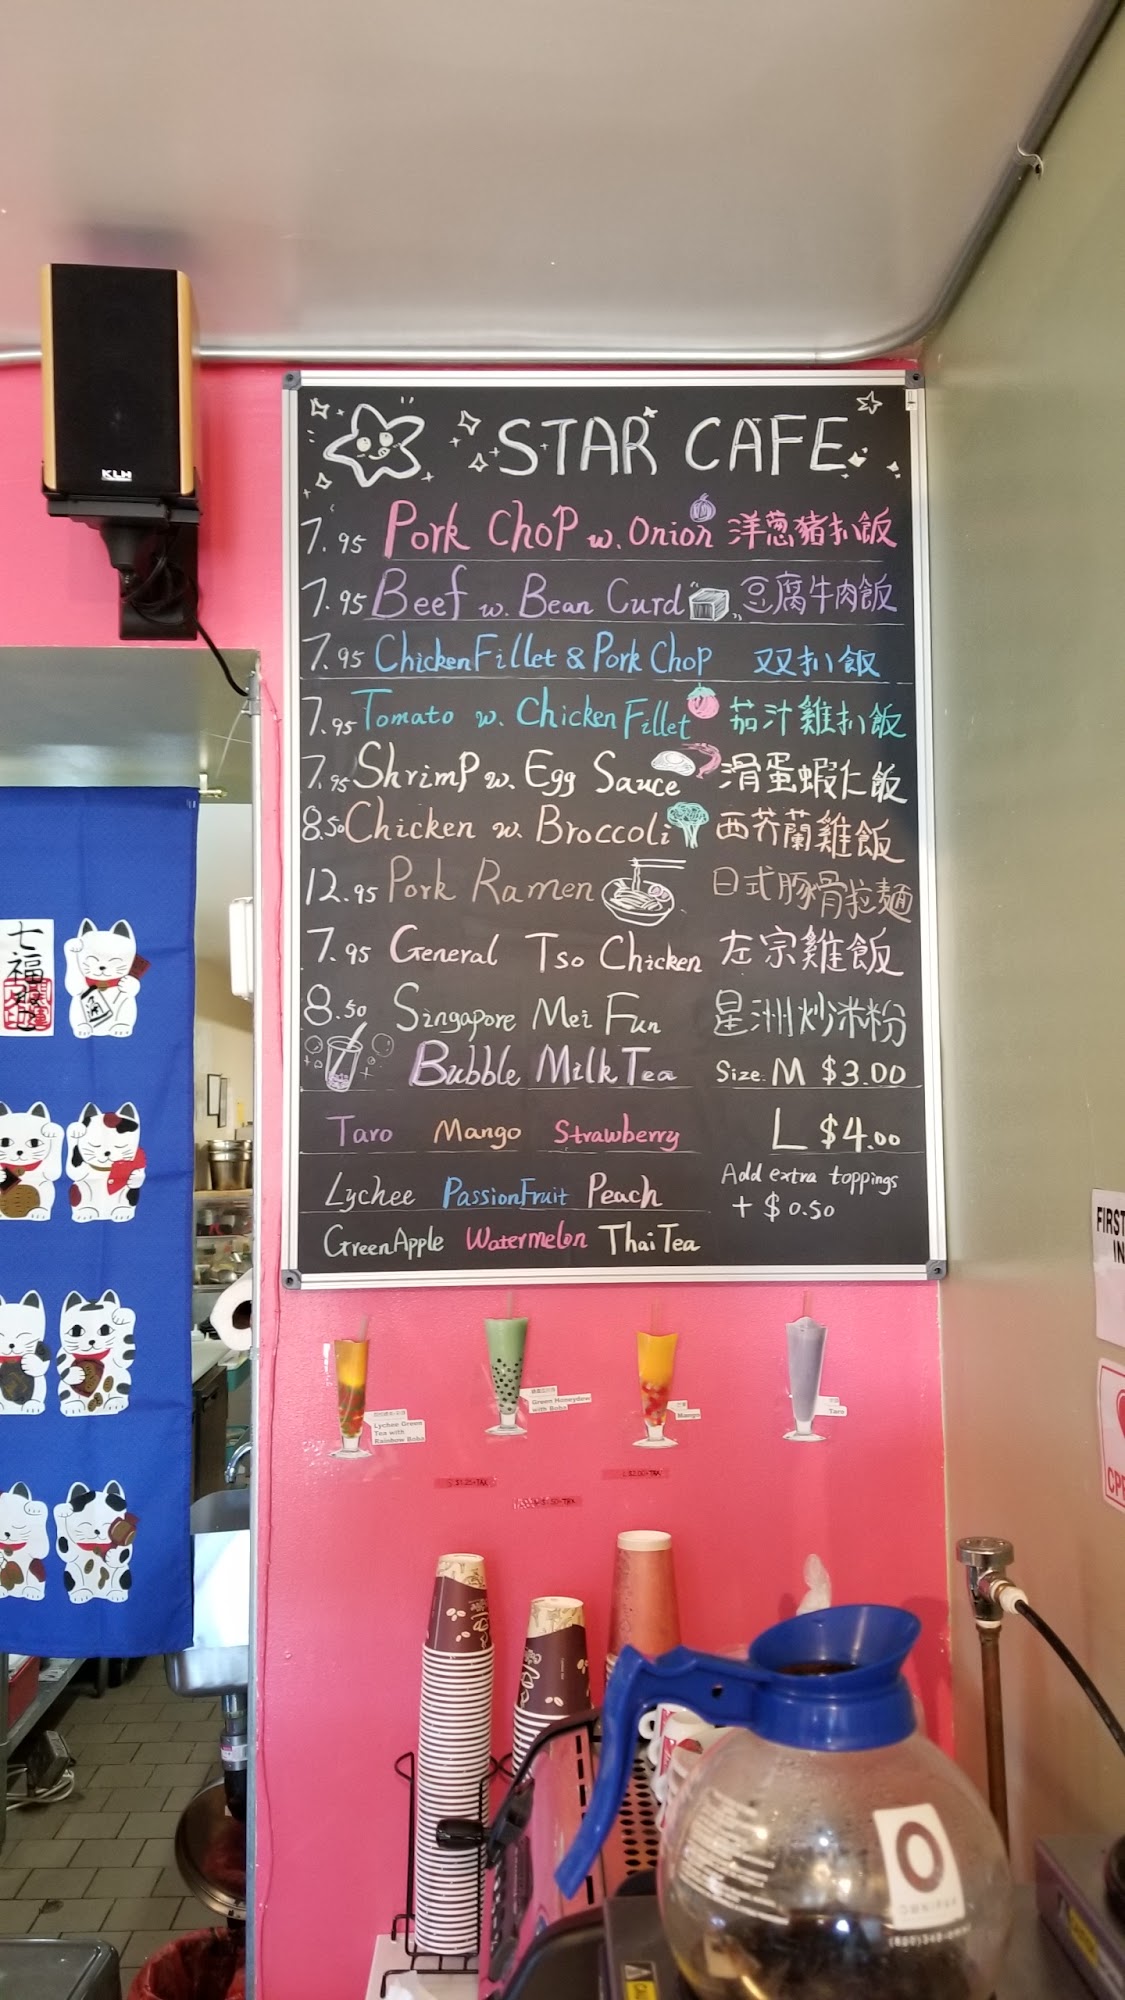 KLH
STAR CAFE
7.95 Pork Chop w. Onion 洋蔥豬扒飯
7.95 Beef w. Bean Curd 豆腐牛肉飯
7.95 Chicken Fillet & Pork Chop 双扒飯
7.95 Tomato w. Chicken Fillet 茄汁雞扒飯
7.95 Shrimp w. Egg Sauce 滑蛋蝦仁飯
8.50 Chicken w. Broccoli 西芥蘭雞飯
12.95 Pork Ramen 日式豚骨拉麵
7.95 General Tso Chicken 左宗雞飯
8.50 Singapore Mei Fun 星洲炒米粉
Bubble Milk Tea Size. M $3.00
Taro Mango Strawberry L $4.00
Lychee PassionFruit Peach
Add extra toppings
+ $0.50
GreenApple Watermelon Thai Tea
七福
Lychee Green
Tea with
Rainbow Boba
Green Honeydew
with Boba
Mango
Taro
FIRST
IN
CPR